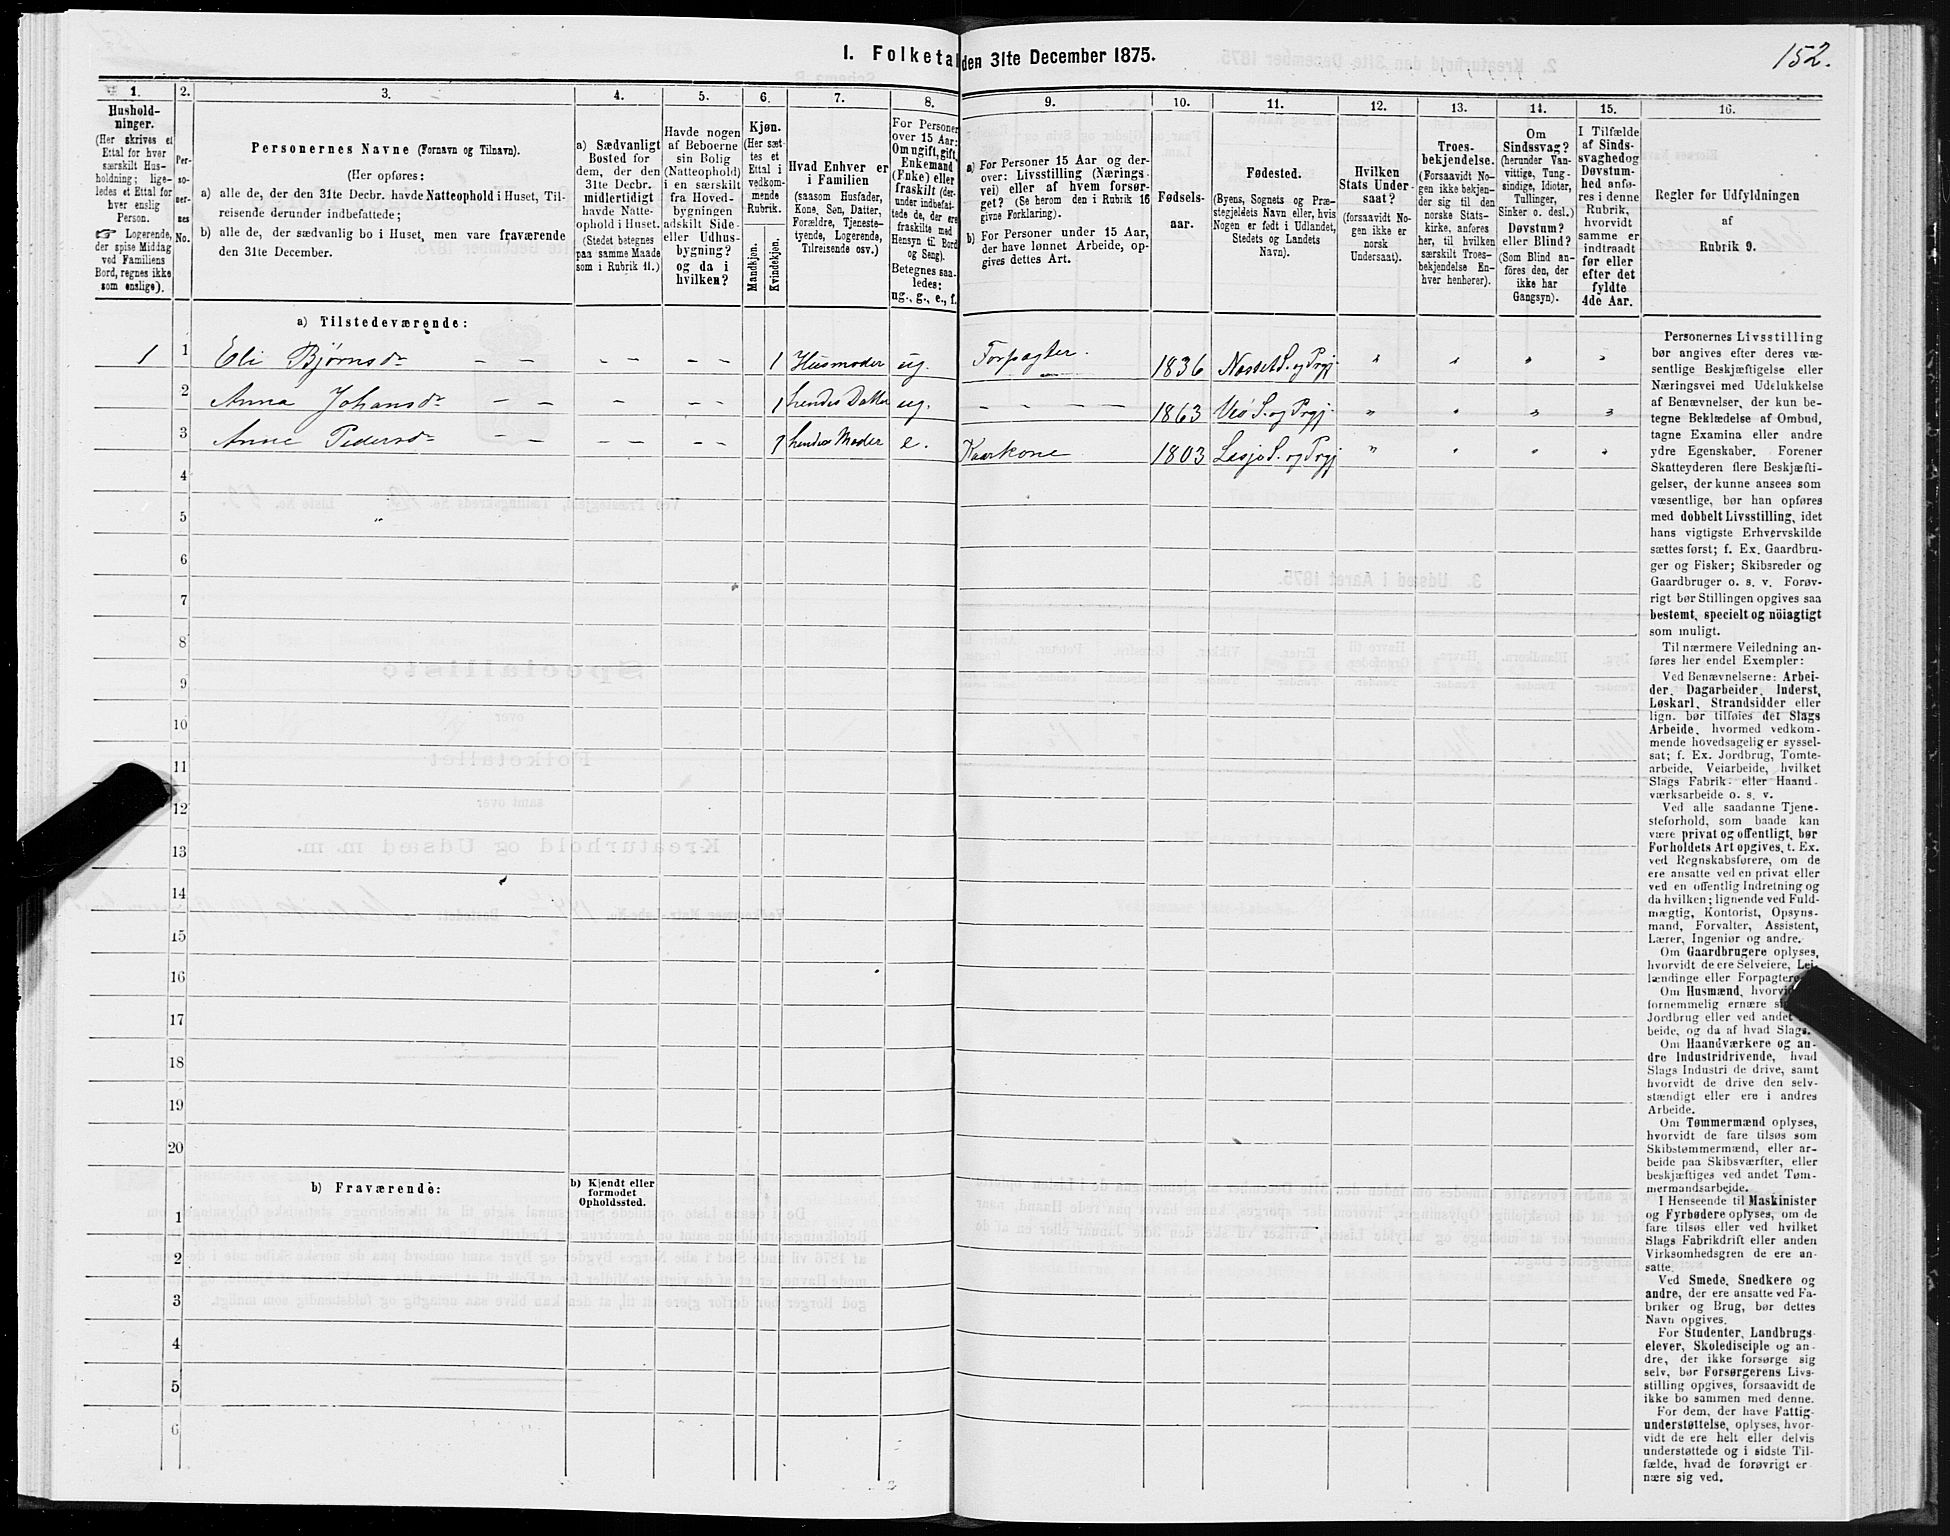 1. Folketal den 31te December 1875.
152.
1.
Hushold-
ninger.
(Her skrives et
Ettal for hver
særskilt Hus-
holdning; lige-
ledes et Ettal for
hver enslig
Person.
☞ Logerende,
der spise Middag
ved Familiens
Bord, regnes ikke
som enslige).
2.
Per-
so-
ner-
nes
No.
3.
Personernes Navne (Fornavn og Tilnavn).
(Her opføres:
a) alle de, der den 31te Decbr. havde Natteophold i Huset, Til-
reisende derunder indbefattede;
b) alle de, der sædvanlig bo i Huset, men vare fraværende
den 31te December.
4.
a) Sædvanligt
Bosted for
dem, der den
31te Decbr.
midlertidigt
havde Natte-
ophold i Huset.
(Stedet betegnes
paa samme Maade
som i Rubrik 11.)
5.
Havde nogen
af Beboerne
sin Bolig
(Natteophold)
i en særskilt
fra Hoved-
bygningen
adskilt Side-
eller Udhus-
bygning?
og da i
hvilken?
6.
Kjøn.
(Her sæt-
tes et
Ettal i
vedkom-
mende
Rubrik.
Mandkjøn.
Kvindekjøn.
7.
Hvad Enhver er
i Familien
(saasom Husfader,
Kone, Søn, Datter,
Forældre, Tjeneste-
tyende, Logerende,
Tilreisende osv.)
8.
For Personer
over 15 Aar:
Om ugift, gift,
Enkemand
(Enke) eller
fraskilt (der-
under indbefat-
tede de, der ere
fraskilte med
Hensyn til Bord
og Seng).
Betegnes saa-
ledes:
ug., g., e., f.
9.
a) For Personer 15 Aar og der-
over: Livsstilling (Nærings-
vei) eller af hvem forsør-
get? (Se herom den i Rubrik 16
givne Forklaring).
b) For Personer under 15 Aar,
der have lønnet Arbeide, op-
gives dettes Art.
10.
Fødsels-
aar.
11.
Fødested.
(Byens, Sognets og Præ-
stegjeldets Navn eller, hvis
Nogen er født i Udlandet,
Stedets og Landets
Navn).
12.
Hvilken
Stats Under-
saat?
(forsaavidt No-
gen ikke er
norsk
Undersaat).
13.
Troes-
bekjendelse.
(Forsaavidt No-
gen ikke bekjen-
der sig til den
norske Stats-
kirke, anføres
her, til hvilken
særskilt Troes-
bekjendelse En-
hver henhører).
14.
Om
Sindssvag?
(herunder Van-
vittige, Tung-
sindige, Idioter,
Tullinger,
Sinker o. desl.)
Døvstum?
eller Blind?
(Som Blind an-
føres den, der
ikke har
Gangsyn).
15.
I Tilfælde
af Sinds-
svaghed og
Døvstum-
hed anfø-
res i denne
Rubrik,
hvorvidt
samme er
indtraadt
før eller
efter det
fyldte
4de Aar.
16.
Regler for Udfyldningen
af
Rubrik 9.
a) Tilstedeværende:
1 1 Eli Bjørnsdr – – – – – – 1 Husmoder ug. Forpagter. 1836 Nosset S. og Prgj. " " " "
2 Anna Johansdr – – – – – – 1 hendes Datter ug. – – – – 1863 Veø S. og Prgj. " " " "
3 Anne Pedersdr – – – – – – 1 hendes Moder e. Kaarkone 1803 Lesje S. og Prgj. " " " "
4
5
6
7
8
9
10
11
12
13
14
15
16
17
18
19
20
b) Fraværende:
b) Kjendt eller
formodet
Opholdssted.
1
2
3
4
5
6
Personernes Livsstilling
bør angives efter deres væ-
sentlige Beskjæftigelse eller
Næringsvei med Udelukkelse
af Benævnelser, der kun be-
tegne Beklædelse af Ombud,
tagne Examina eller andre
ydre Egenskaber. Forener
Skatteyderen flere Beskjæfti-
gelser, der kunne ansees som
væsentlige, bør han opføres
med dobbelt Livsstilling, idet
hans vigtigste Erhvervskilde
sættes først; f. Ex. Gaardbru-
ger og Fisker; Skibsreder og
Gaardbruger o. s. v. Forøv-
rigt bør Stillingen opgives saa
bestemt, specielt og nöiagtigt
som muligt.
Til nærmere Veiledning an-
føres her endel Exempler:
Ved Benævnelserne: Arbei-
der, Dagarbeider, Inderst,
Løskarl, Strandsidder eller
lign. bør tilføies det Slags
Arbeide, hvormed vedkom-
mende hovedsagelig er syssel-
sat; f. Ex. Jordbrug, Tomte-
arbeide, Veiarbeide, hvilket
Slags Fabrik- eller Haand-
værksarbeide o. s. v.
Ved alle saadanne Tjene-
steforhold, som baade kan
være privat og offentligt, bør
Forholdets Art opgives, t. Ex.
ved Regnskabsførere, om de
ere ansatte ved en privat eller
ved en offentlig Indretning og
da hvilken; lignende ved Fuld-
mægtig, Kontorist, Opsyns-
mand, Forvalter, Assistent,
Lærer, Ingeniør og andre.
Om Gaardbrugere oplyses,
hvorvidt de ere Selveiere, Lei-
lændinge eller Forpagtere.
Om Husmænd, hvorvidt
fornemmelig ernære
Jordbrug eller ved andet
beide, og da af hvad Slags.
Om Haandværkere og an-
dre Industridrivende, hvad
Slags Industri de drive, samt
hvorvidt de drive den selv-
stændigt eller ere i andres
Arbeide.
Om Tømmermænd oplyses,
hvorvidt de fare tilsøs som
Skibstømmermænd, eller ar-
beide paa Skibsværfter, eller
beskjæftiges ved andet Tøm-
mermandsarbeide.
I Henseende til Maskinister
og Fyrbødere oplyses, om de
fare tilsøs eller ved hvilket
Slags Fabrikdrift eller anden
Virksomhedsgren de ere an-
satte.
Ved Smede, Snedkere og
andre, der ere ansatte ved Fa-
briker og Brug, bør dettes
Navn opgives.
For Studenter, Landbrugs-
elever, Skoledisciple og an-
dre, der ikke forsørge sig
selv, bør Forsørgerens Livs-
stilling opgives, forsaavidt de
ikke bo sammen med denne.
For dem, der have Fattig-
understøttelse, oplyses, hvor-
vidt de ere helt eller delvis
understøttede og i sidste Til-
fælde, hvad de forøvrigt er-
nære sig ved.